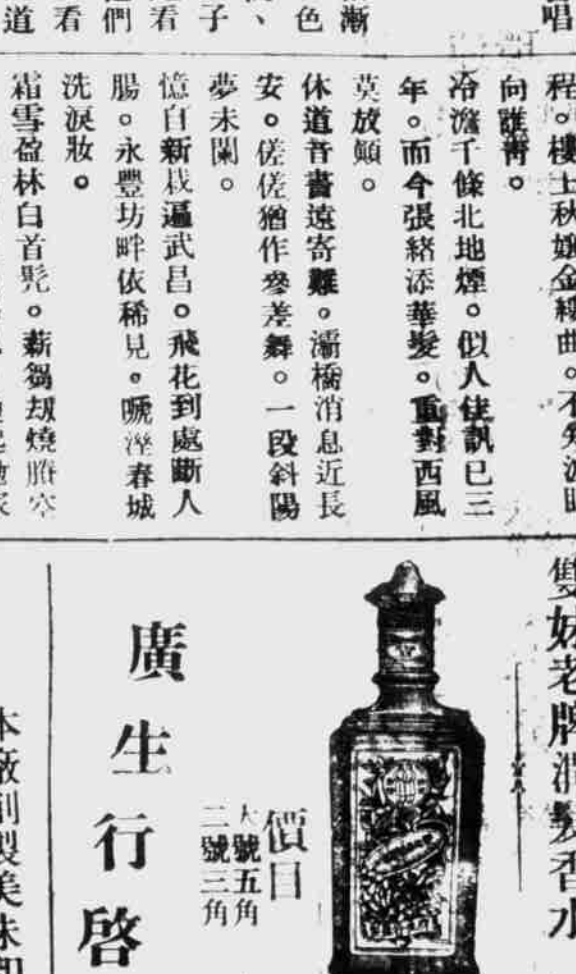 唱
漸
色
、
子
看
們
看
道
程。樓上秋娘金縷曲。不
向誰靑。
冷澹千條北地煙。似人佳訊已三
年。而今張緒添華髮。重對西風
莫放顚。
休道音書遠寄難。灞橋消息近長
安。傞傞猶作參差舞。一段斜陽
夢未闌。
憶自新栽遍武昌。飛花到處斷人
腸。永豐坊畔依稀見。嗁溼春城
洗淚妝。
霜雪盈林白首髡。薪芻刼燒賸空
雙妹老牌潤髮香水
價目
大號五角
二號三角
廣生行啓
本廠創製美味